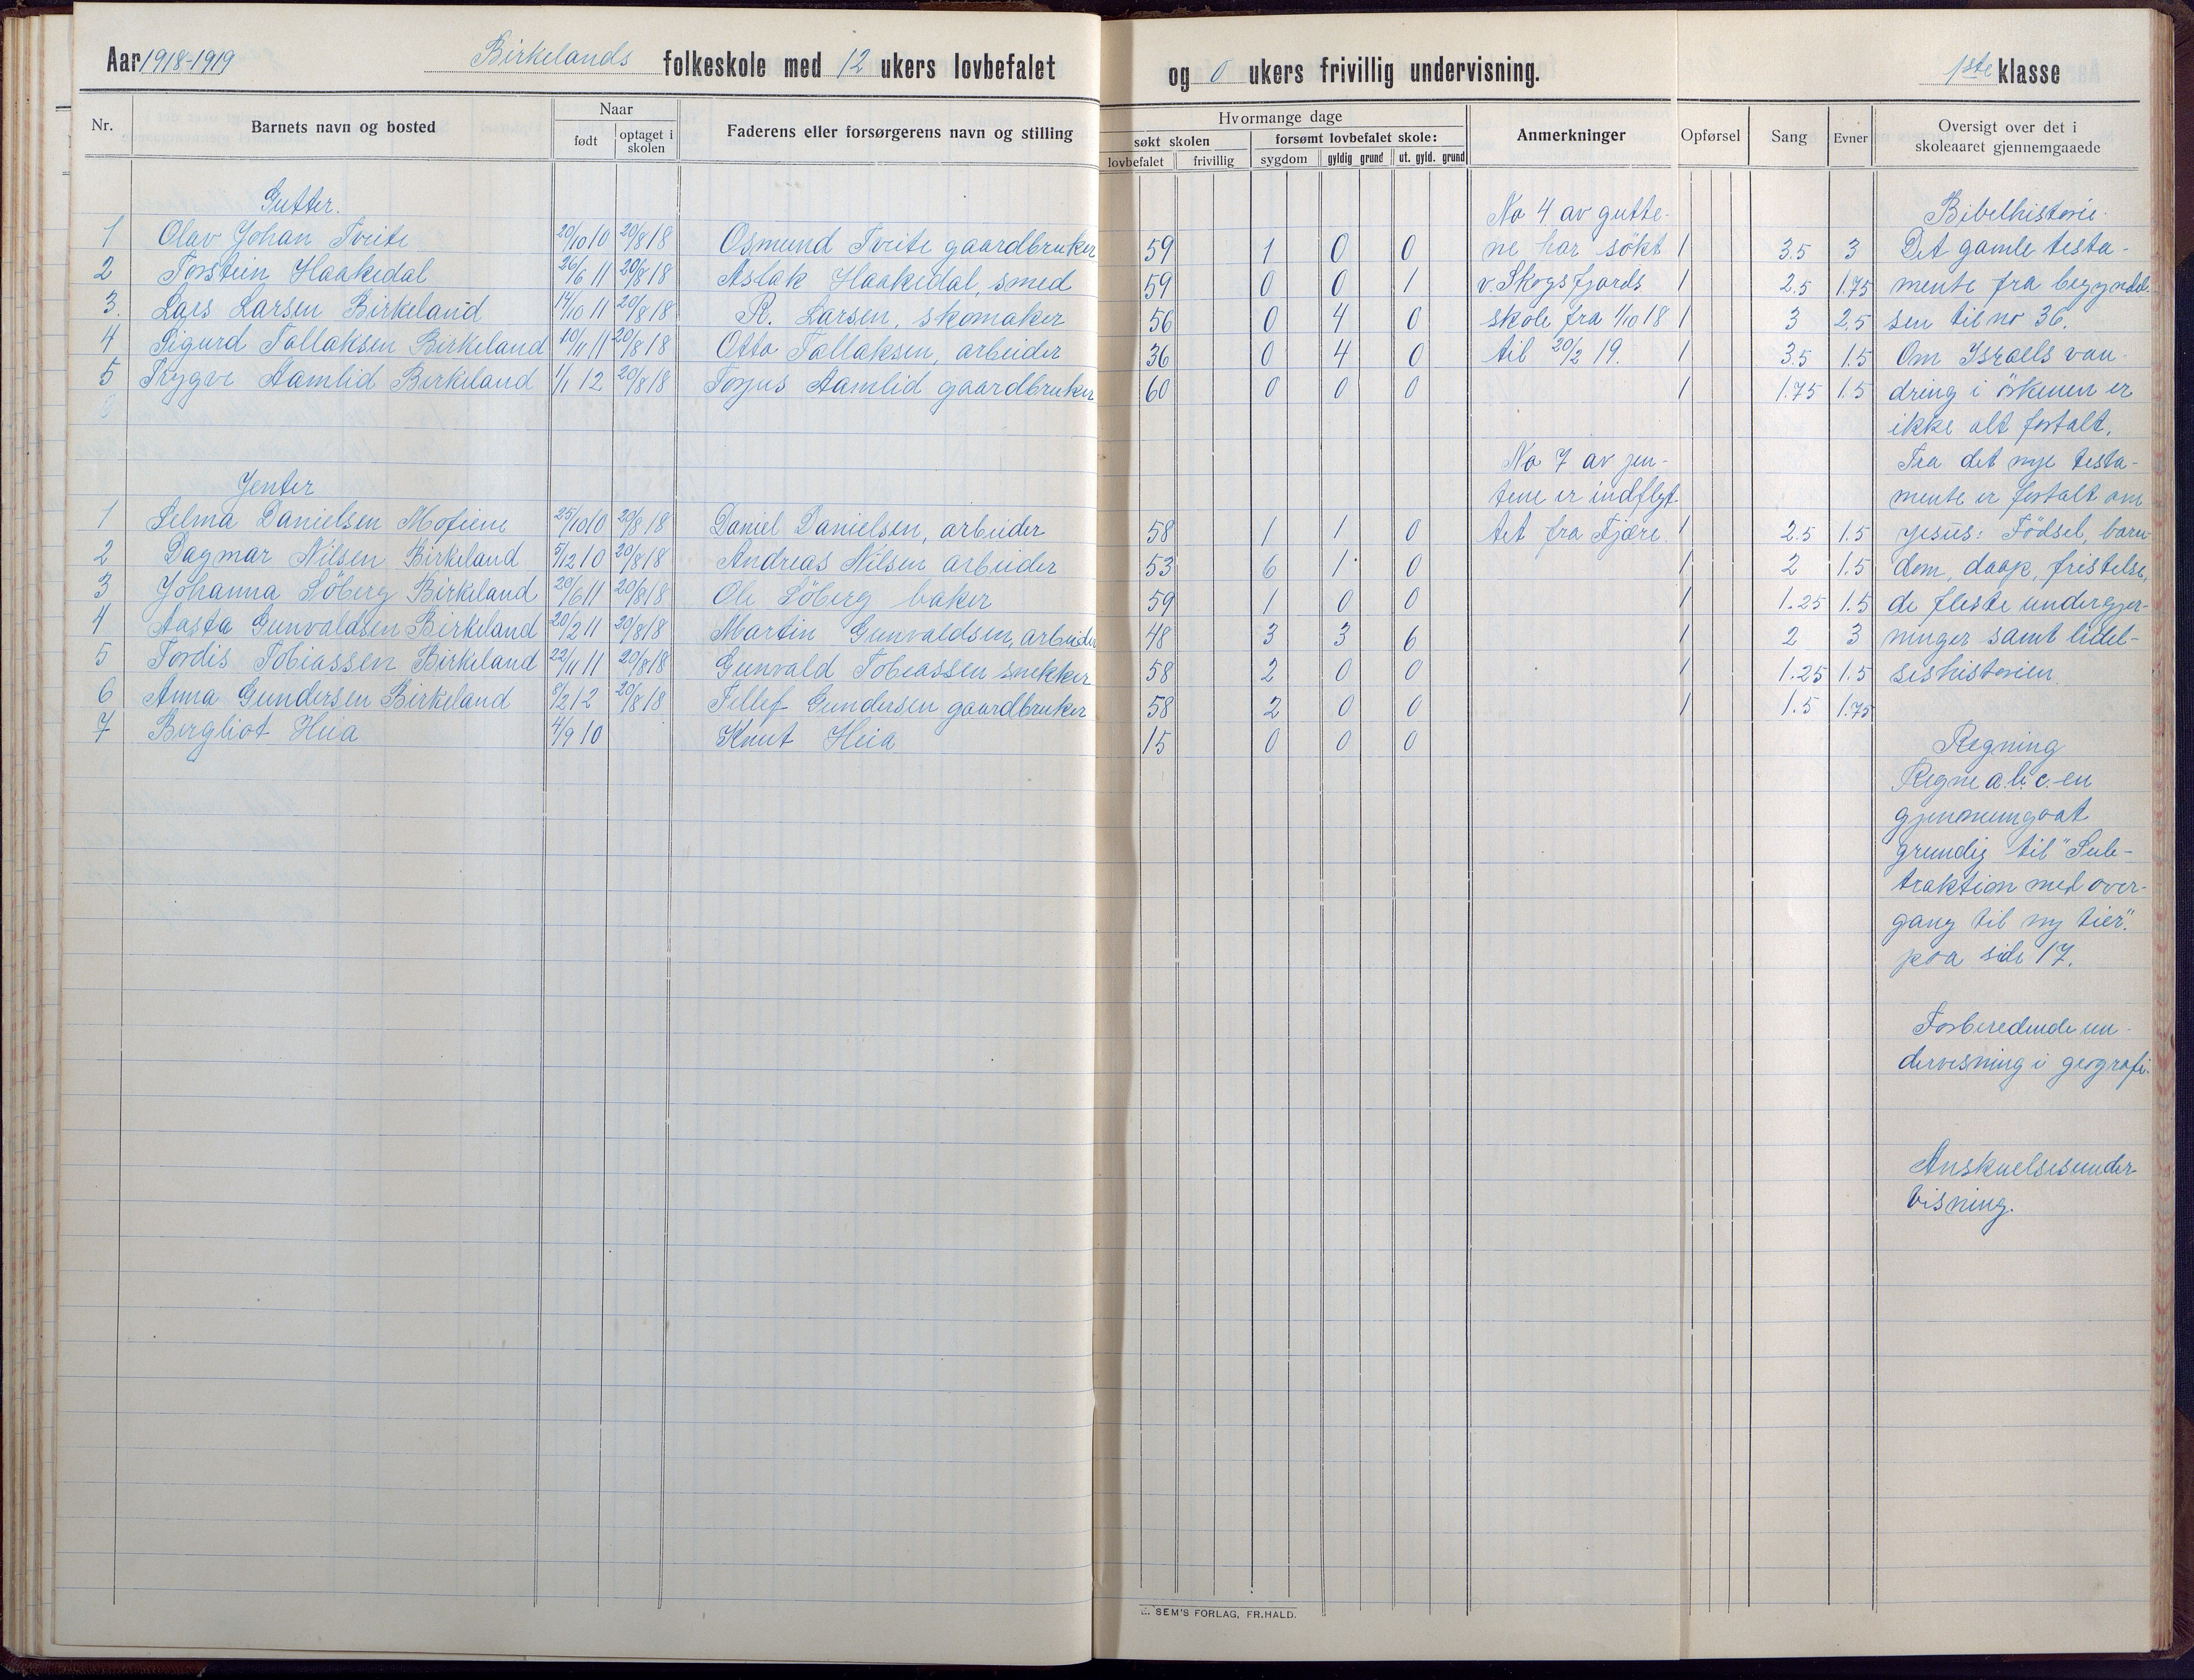 Aar 1918-1919 Birkelands folkeskole med 12 ukers lovbefalet og 0 ukers frivillig undervisning. 1ste klasse
Nr. Barnets navn og bosted Naar født optaget i skolen Faderens eller forsørgerens navn og stilling
Hvormange dage
søkt skolen forsømt lovbefalet skole: Anmerkninger Opførsel Sang Evner Oversigt over det i skoleaaret gjennemgaaede
lovbefalet frivillig sygdom gyldig grund ut. gyld. grund
Gutter.
1 Olav Johan Tveite 20/10 10 20/8 18 Osmund Tveite gaardbruker 59 1 0 0 1 3.5 3
2 Torstein Haakedal 26/6 11 20/8 18 Aslak Haakedal, smed 59 0 0 1 1 2.5 1.75
3. Lars Larsen Birkeland 14/10 11 20/8 18 R. Larsen, skomaker 56 0 4 0 1 3 2.5
4 Sigurd Tallaksen Birkeland 10/11 11 20/8 18 Otto Tallaksen, arbeider 36 0 4 0 1 3.5 1.5
5 Trygve Aamlid Birkeland 1/1 12 20/8 18 Torjus Aamlid gaardbruker 60 0 0 0 1 1.75 1.5
Jenter
1 Selma Danielsen Mofiene 25/10 10 20/8 18 Daniel Danielsen, arbeider 58 1 1 0 1 2.5 1.5
2 Dagmar Nilsen Birkeland 5/12 10 20/8 18 Andreas Nilsen arbeider 53 6 1 0 1 2 1.5
3 Johanna Söberg Birkeland 20/6 11 20/8 18 Ole Söberg baker 59 1 0 0 1 1.25 1.5
4 Aasta Gunvaldsen Birkeland 20/2 11 20/8 18 Martin Gunvaldsen, arbeider 48 3 3 6 1 2 3
5 Tordis Tobiassen Birkeland 22/11 11 20/8 18 Gunvald Tobiassen snekker 58 2 0 0 1 1.25 1.5
6 Anna Gundersen Birkeland 8/2 12 20/8 18 Tellef Gundersen gaardbruker 58 2 0 0 1 1.5 1.75
7 Bergliot Heia 4/9 10 Knut Heia 15 0 0 0
No 4 av gutte-
ne har søkt
v. Skogsfjords
skole fra 1/10 18
til 20/2 19.
No 7 av jen-
tene er indflyt-
tet fra Fjære.
Bibelhistorie.
Det gamle testa-
mente fra begyndel-
sen til no 36.
Om Israels van-
dring i örkenen er
ikke alt fortalt.
Fra det nye testa-
mente er fortalt om
Jesus: Födsel, barn-
dom, daap, fristelse,
de fleste undergjer-
ninger samt lidel-
seshistorien.
Regning
Regne a.b.c-en
gjennemgaat
grundig til "Sub-
traktion med over-
gang til ny tier"
paa side 17.
Forberedende un-
dervisning i geografi.
Anskuelsesunder-
visning.
E. SEM'S FORLAG, FR.HALD.